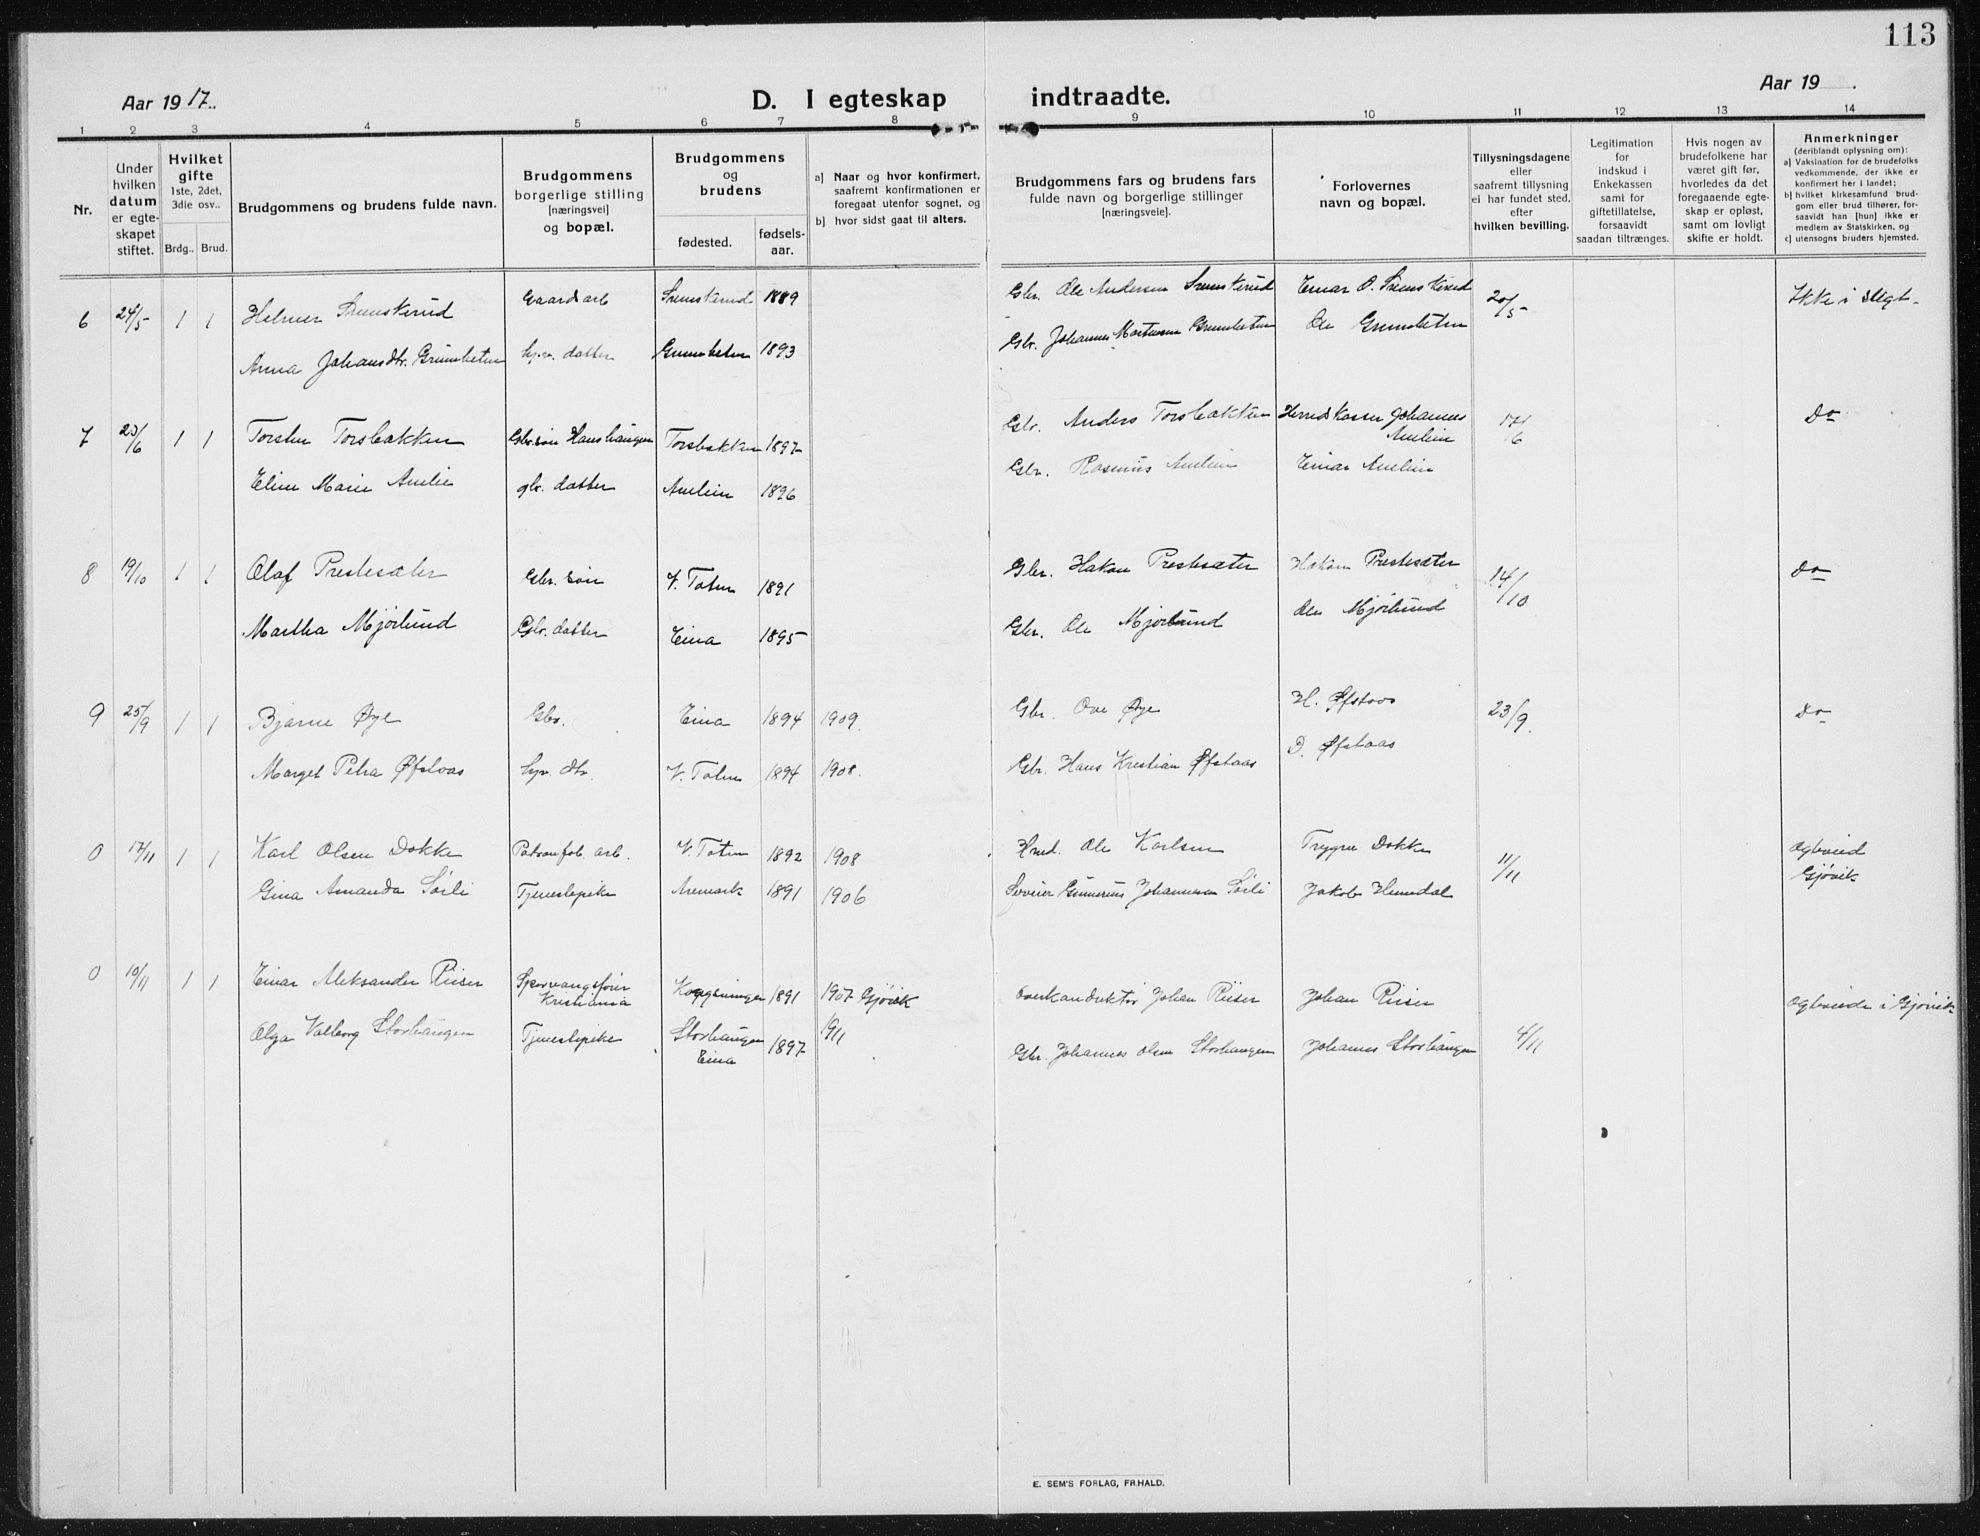 113
Aar 1917.
D. I egteskap indtraadte.
Aar 19 .
1 2 3 4 5 6 7 8 9 10 11 12 13 14
Nr.
Under
hvilken
datum
er egte-
skapet
stiftet.
Hvilket
gifte
1ste, 2det,
3die osv..
Brdg.. Brud.
Brudgommens og brudens fulde navn.
Brudgommens
borgerlige stilling
[næringsvei]
og bopæl.
Brudgommens
og
brudens
fødested.
fødsels-
aar.
a] Naar og hvor konfirmert,
saafremt konfirmationen er
foregaat utenfor sognet, og
b] hvor sidst gaat til alters.
Brudgommens fars og brudens fars
fulde navn og borgerlige stillinger
[næringsveie].
Forlovernes
navn og bopæl.
Tillysningsdagene
eller
saafremt tillysning
ei har fundet sted,
efter
hvilken bevilling.
Legitimation
for
indskud i
Enkekassen
samt for
giftetillatelse,
forsaavidt
saadan tiltrænges.
Hvis nogen av
brudefolkene har
været gift før,
hvorledes da det
foregaaende egte-
skap er opløst,
samt om lovligt
skifte er holdt.
Anmerkninger
(deriblandt oplysning om):
a) Vaksination for de brudefolks
vedkommende, der ikke er
konfirmert her i landet;
b) hvilket kirkesamfund brud-
gom eller brud tilhører, for-
saavidt han [hun] ikke er
medlem av Statskirken, og
c] utensogns bruders hjemsted.
6 24/5 1 1 Helmer Srunskerud Gaardarb 1889 Gbr. Ole Andersen Einar O. 20/5 Ikke i slegt
Anna Johansdtr. Grumheten datter 1893 Gbr. Johannes Ole
7 23/6 1 1 Torsten Torsbakken Gbr. søn Hanshaugen Torsbakken 1897 Gbr. Anders Torsbakken Herredskasser Johannes Amlien 17/6 Do
Eline Marie Amlie gbr. datter Amlien 1896 Gbr. Rasmus Amlien Einar Amlien
8 19/10 1 1 Olaf Prestesæter Gbr. søn V. Toten 1891 Gbr. Hakon Prestesæter Hakon Prestesæter 14/10 Do
Martha Mjørlund Gbr. datter Eina 1895 Gbr. Ole Mjørlund Ole Mjørlund
9 25/9 1 1 Bjarne Øye Gbr. Eina 1894 1909. Gbr. Ove Øye H. Øfstaas 23/9 Do
Marget Petra Øfstaas dtr. V. Toten 1894 1908. Gbr. Hans Kristian Øfstaas D. Øfstaas
0 17/11 1 1 Karl Olsen Dokke Patronfab. arb. V. Toten 1892 1908 Hmd. Ole Karlsen Trygve Dokke 11/11 Gjøvik
Gina Amanda Søili Tjenestepike Aremark 1891 1906 Gunnerius Johannesen Søili Jakob Hemdal
0 10/11 1 1 Einar Aleksander Riiser Kristiania 1891 1907 Gjøvik Overkonduktør Johan Riiser Johan Riiser i Gjøvik
Olga Valborg Storhaugen Tjenestepike Storhaugen Eina 1897 1911 Gbr. Johannes Olsen Storhaugen Johannes Storhaugen 4/11
E. SEM'S FORLAG, FR.HALD.